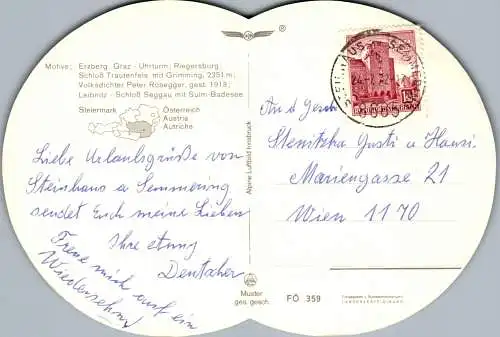 Motive: Erzberg, Graz - Uhrturm; Riegersburg;
Schloß Trautenfels mit Grimming, 2351 m;
Volksdichter Peter Rosegger, gest. 1918;
Leibnitz - Schloß Seggau mit Sulm-Badesee
Steiermark
Österreich
Austria
Autriche
Liebe Urlaubsgrüße von
Steinhaus a Semmering
sendet Euch meine Lieben
Ihre
Deutscher
Freue mich auf ein
Wiedersehn
Alpine Luftbild Innsbruck
Muster
ges. gesch.
FÖ 359
STEINHAUS
An d Gesch
Stenitzka Gusti u Hansi
Mariengasse 21
Wien 1170